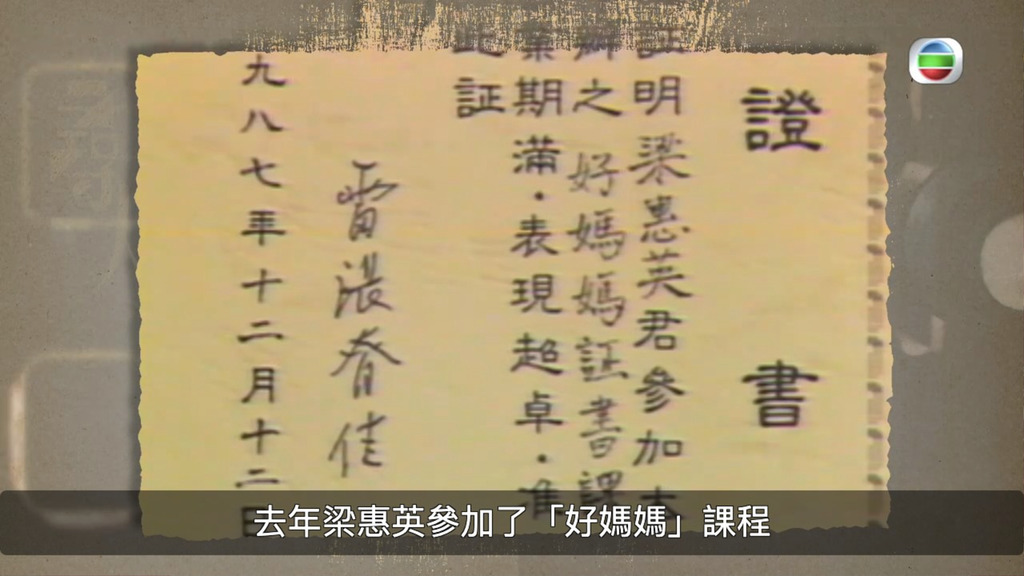 證書
証明梁惠英君參加本
辦之好媽媽証書課
業期滿・表現超卓・准
此証
雷張眘佳
九八七年十二月十二日
去年梁惠英參加了「好媽媽」課程